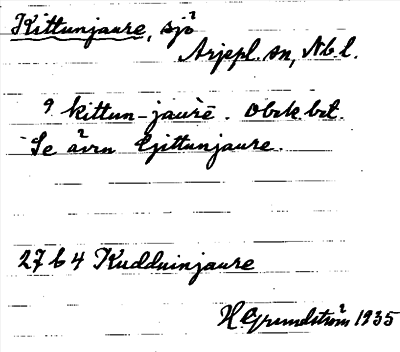 Kittunjaure, sjö
Arjepl. sn, Nb. l.
kittun-jaurē. Obek. bet.
Se även Gjittunjaure.
27 b 4 Kudduinjaure
H Grundström 1935